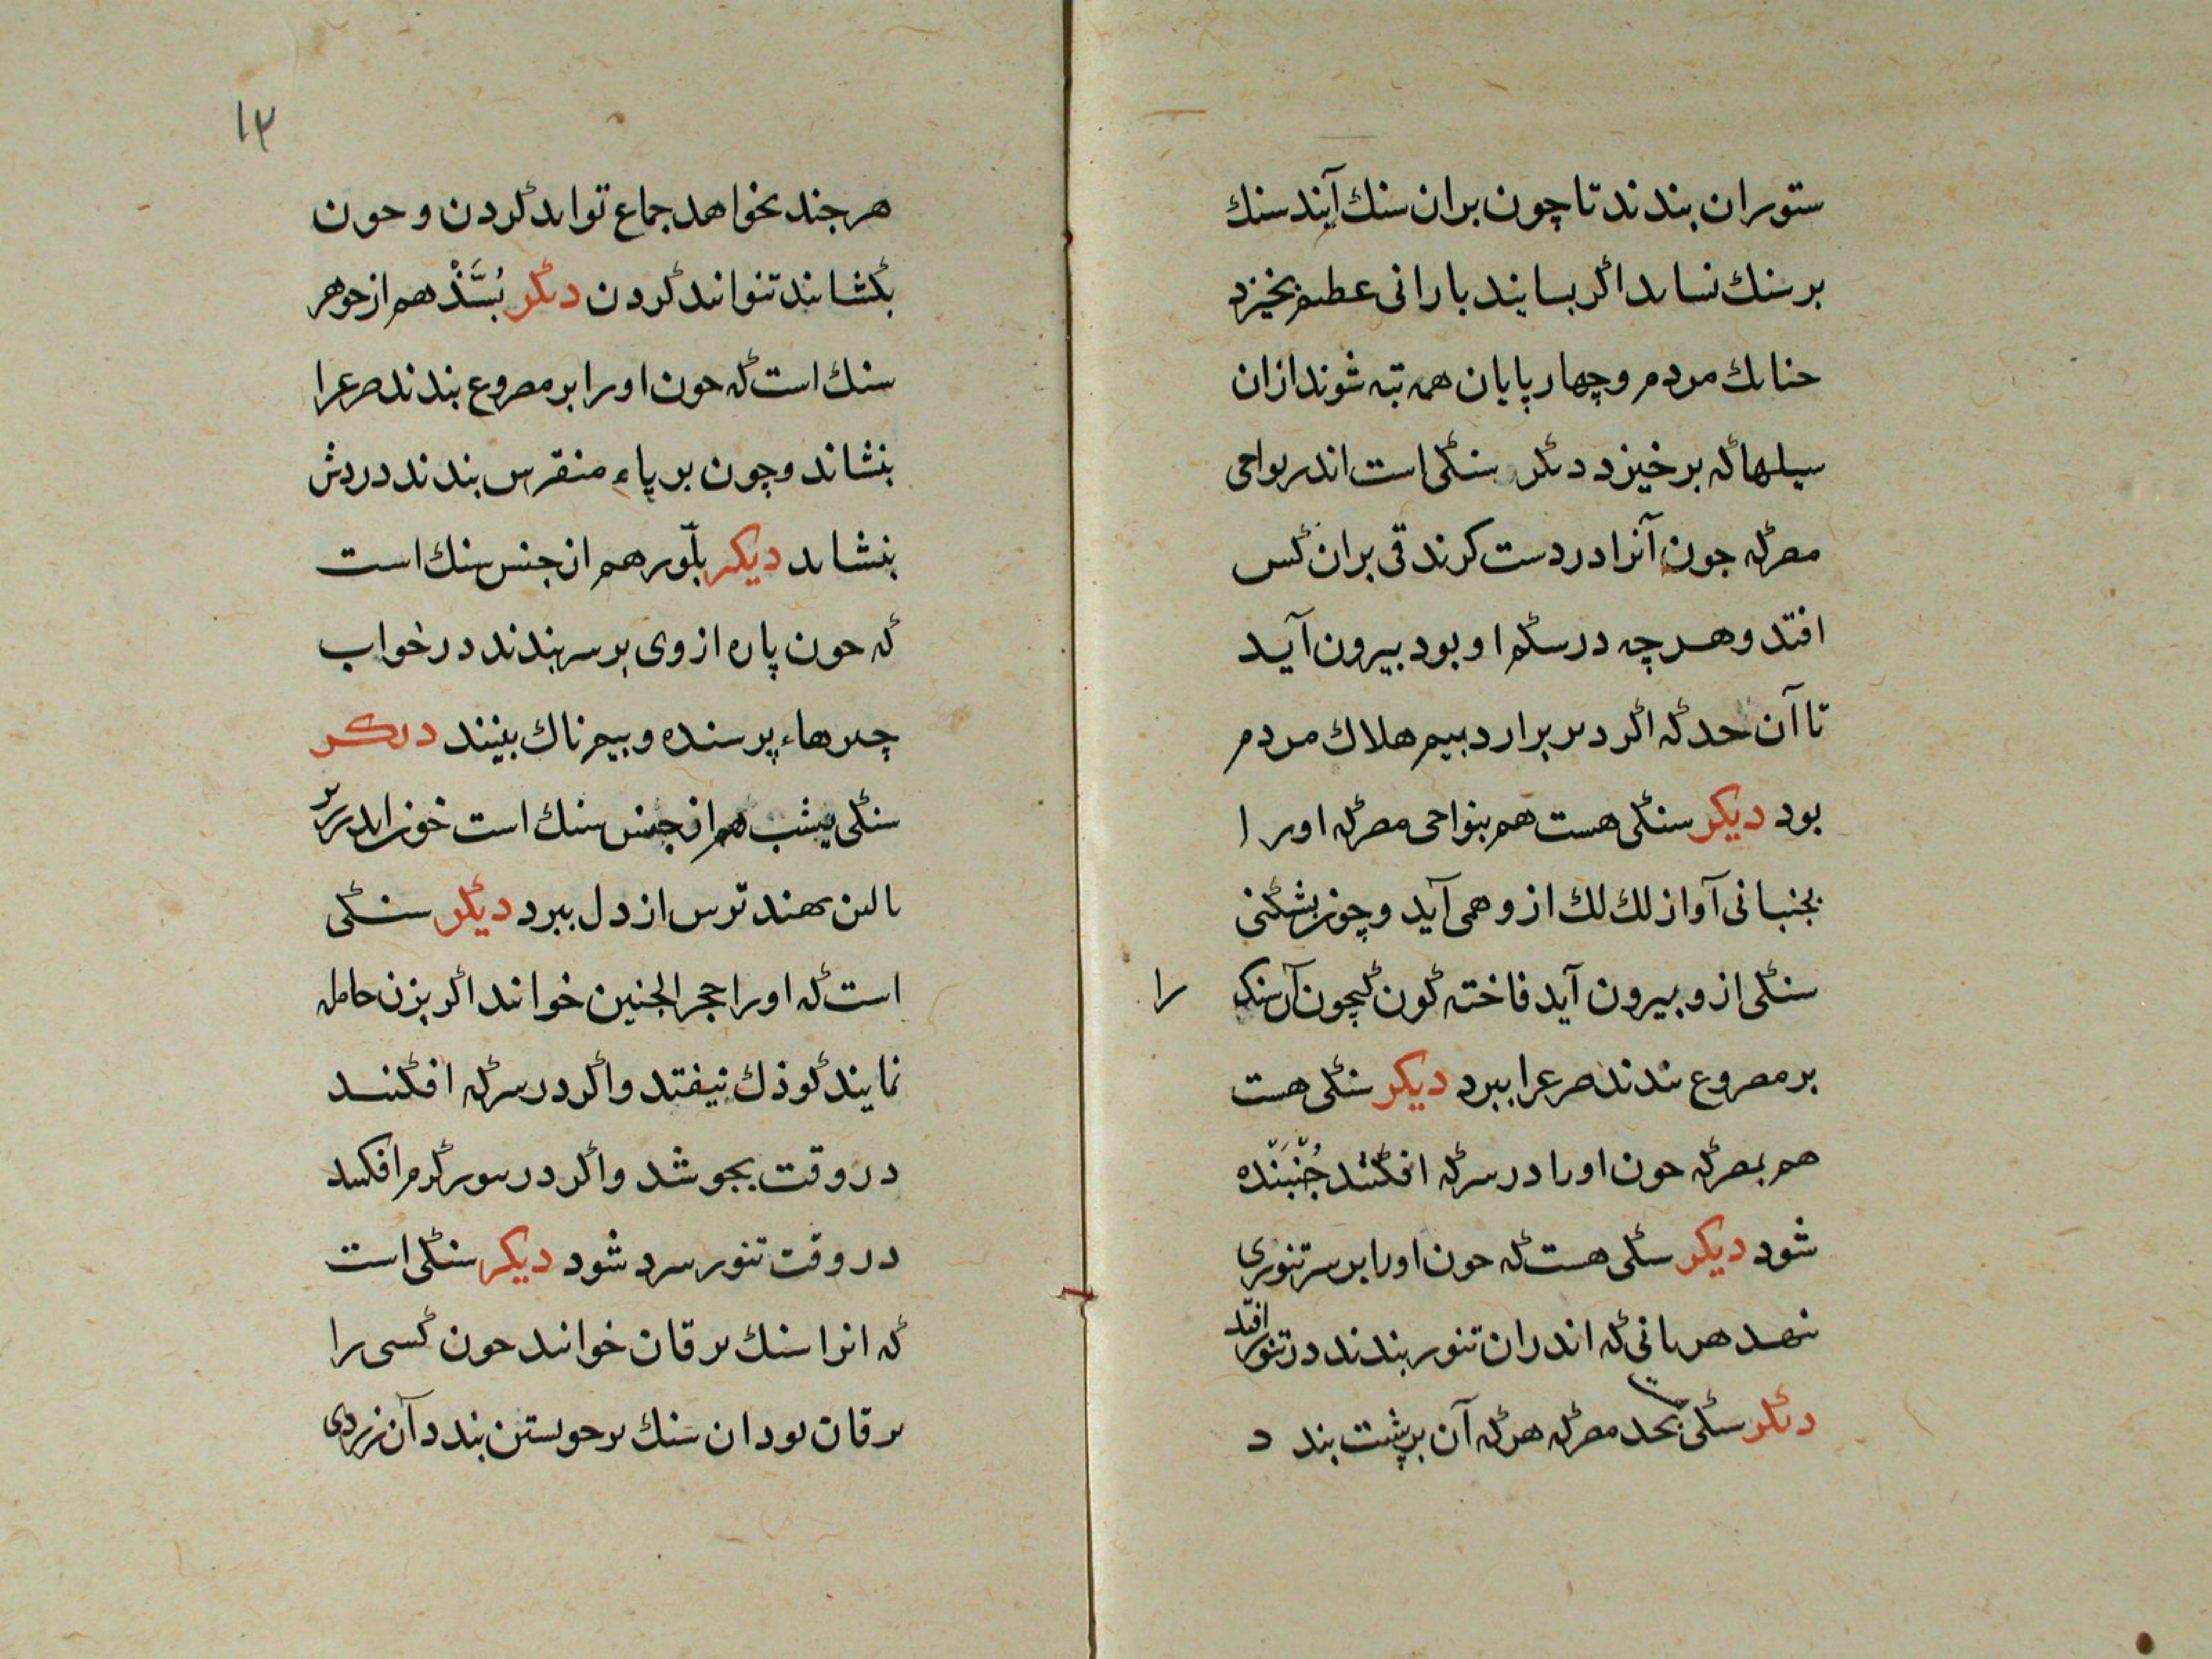 ستوران بندند تا چون بران سنك آیند سنك
بر سنك نساید اگر بسایند بارانی عظیم بخیزد
چنانك مردم و چهارپایان همه تبه شوند ازان
سیلها که برخیزد دیگر سنگی است اندر نواحی
مصر که چون آنرا در دست گرند قی بران کس
افتد و هر چه در شکم او بود بیرون آید
تا آن حد که اگر دیر برارد بیم هلاك مردم
بود دیگر سنگی هست هم بنواحی مصر که او را
بجنبانی آواز لك لك ازو همی آید و چون بشکنی
سنگی ازو بیرون آید فاخته گون کچون آن سنک را
بر مصروع بندند صرع را ببرد دیگر سنگی هست
هم بمصر که چون او را در سرکه افکنند جُنبَنده
شود دیگر سنگی هست که چون او را بر سر تنوری
نهد هر نانی که اندران تنور بندند در تنور افتد
دیگر سنگی بحد مصر که هر که آن بر پشت بندد
۱۳
هر چند بخواهد جماع تواند کردن و چون
بگشایند تنواند کردن دیگر بُسَّذْ هم از جوهر
سنك است که چون او را بر مصروع بندند صرع را
بنشاند و چون بر پاء منقرس بندند دردش
بنشاند دیگر بلّور هم از جنس سنك است
که چون پاره از وی بر سر بندند در خواب
چیزهاء پرسنده و بیم ناك بینند دیگر
سنگی یشب هم از جنس سنك است خون اندر زیر
بالین نهند ترس از دل ببرد دیگر سنگی
است که او را حجر الجنین خوانند اگر بزن حامله
نمایند کوذك نیفتد و اگر در سرکه افکنند
در وقت بجوشد و اگر در تنور گرم افکنند
در وقت تنور سرد شود دیگر سنگی است
که انرا سنك یرقان خوانند چون کسی را
یرقان بود ان سنك بر خویشتن بندد آن زردی